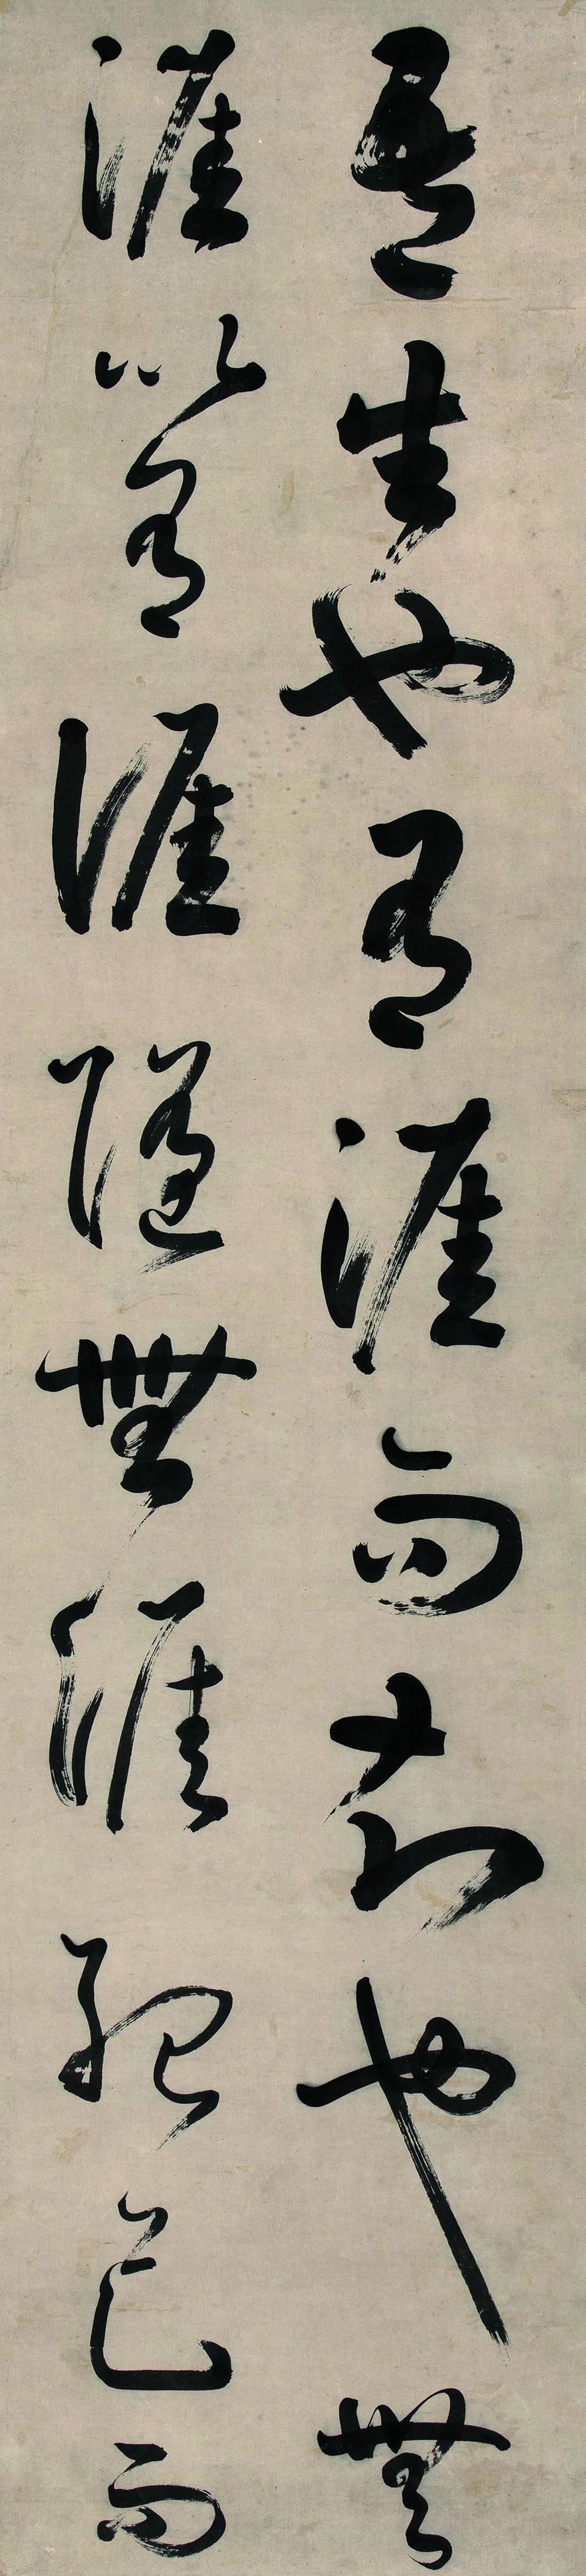 吾生也有涯而知也無
涯以有涯隨無涯殆已而